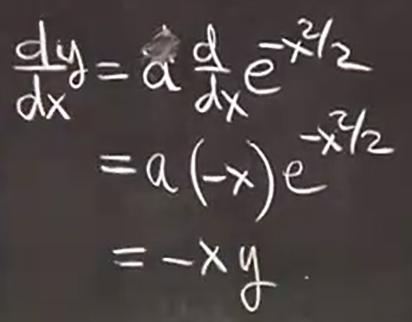 dy/dx = a d/dx e^{-x^2/2}
= a(-x) e^{-x^2/2}
= -xy.